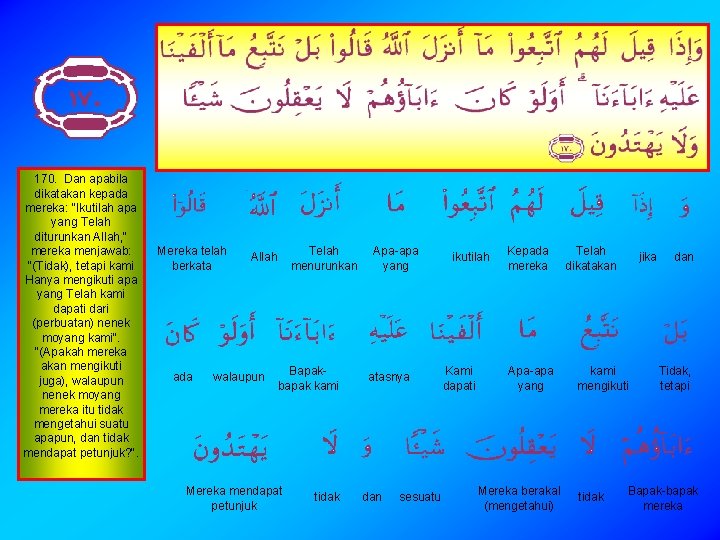 وَإِذَا قِيلَ لَهُمُ ٱتَّبِعُوا۟ مَآ أَنزَلَ ٱللَّهُ قَالُوا۟ بَلْ نَتَّبِعُ مَآ أَلْفَيْنَا
عَلَيْهِ ءَابَآءَنَآ ۗ أَوَلَوْ كَانَ ءَابَآؤُهُمْ لَا يَعْقِلُونَ شَيْـًٔا
وَلَا يَهْتَدُونَ ١٧٠
١٧٠
170. Dan apabila
dikatakan kepada
mereka: "Ikutilah apa
yang Telah
diturunkan Allah,"
mereka menjawab:
"(Tidak), tetapi kami
Hanya mengikuti apa
yang Telah kami
dapati dari
(perbuatan) nenek
moyang kami".
"(Apakah mereka
akan mengikuti
juga), walaupun
nenek moyang
mereka itu tidak
mengetahui suatu
apapun, dan tidak
mendapat petunjuk?".
وَ إِذَآ قِيلَ لَهُمُ ٱتَّبِعُوا۟ مَا أَنزَلَ ٱللَّهُ قَالُوٓا۟
dan jika Telah dikatakan Kepada mereka ikutilah Apa-apa yang Telah menurunkan Allah Mereka telah berkata
بَلْ نَتَّبِعُ مَا أَلْفَيْنَا عَلَيْهِ ءَابَآءَنَآ أَوَلَوْ كَانَ
Tidak, tetapi kami mengikuti Apa-apa yang Kami dapati atasnya Bapak-bapak kami walaupun ada
ءَابَآؤُهُمْ لَا يَعْقِلُونَ شَيْـًٔا وَ لَا يَهْتَدُونَ
Bapak-bapak mereka tidak Mereka berakal (mengetahui) sesuatu dan tidak Mereka mendapat petunjuk